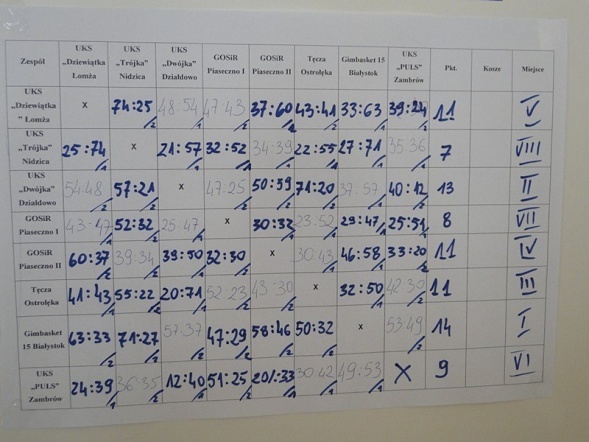 Zespół UKS „Dziewiątka” Łomża UKS „Trójka” Nidzica UKS „Dwójka” Działdowo GOSiR Piaseczno I GOSiR Piaseczno II Tęcza Ostrołęka Gimbasket 15 Białystok UKS „PULS” Zambrów Pkt. Kosze Miejsce
UKS „Dziewiątka” Łomża x 74:25/2 48-54/1 47-43/2 37:60/1 43:41/2 33:63/1 39:24/2 11 V
UKS „Trójka” Nidzica 25:74/1 x 21:57/1 32:52/1 34-39/1 22:55/1 27:71/1 35:36/1 7 VIII
UKS „Dwójka” Działdowo 54-48/2 57:21/2 x 47:25/2 50:39/2 71:20/2 37-57/1 40:12/2 13 II
GOSiR Piaseczno I 43-47/1 52:32/2 25-47/1 x 30:32/1 23:52/1 29:47/1 25:51/1 8 VII
GOSiR Piaseczno II 60:37/2 39-34/2 39:50/1 32:30/2 x 30:43/1 46:58/1 33:20/2 11 IV
Tęcza Ostrołęka 41:43/1 55:22/2 20:71/1 52-23/2 43-30/2 x 32:50/1 42-30/2 11 III
Gimbasket 15 Białystok 63:33/2 71:27/2 57-37/2 47:29/2 58:46/2 50:32/2 x 53:49/2 14 I
UKS „PULS” Zambrów 24:39/1 36-35/2 12:40/1 51:25/2 20:33/1 30-42/1 49:53/1 X 9 VI